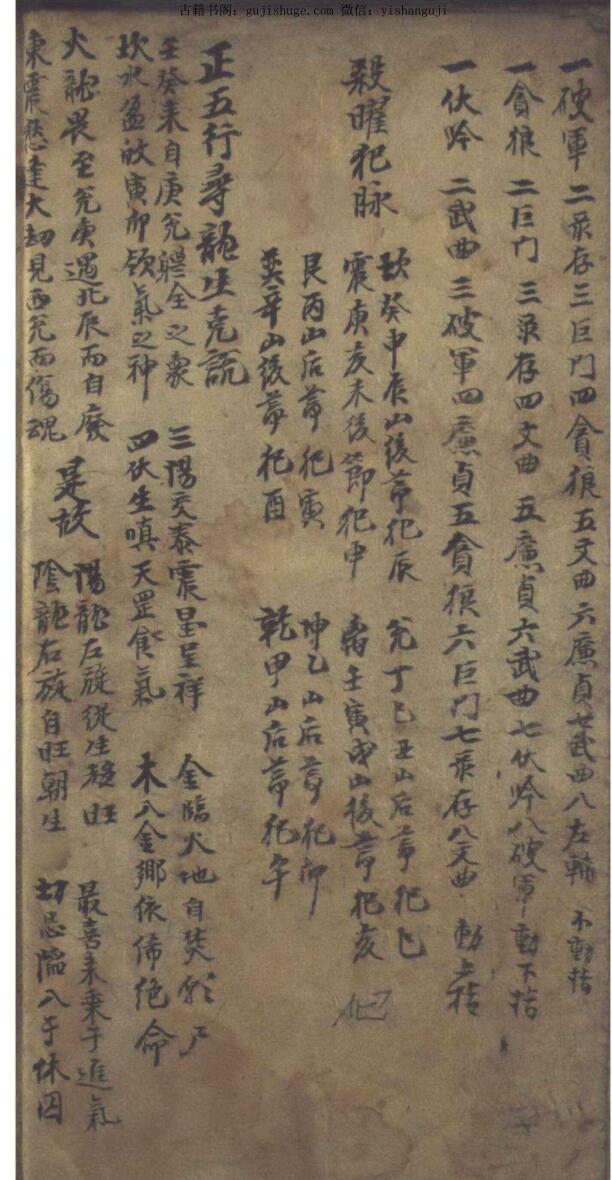 古籍书阁：gujishuge.com 微信：yishanguji
一破軍 二录存 三巨門 四貪狼 五文曲 六廉貞 七武曲 八左輔 不動指
一貪狼 二巨门 三录存 四文曲 五廉貞 六武曲 七伏吟 八破軍 動下指
一伏吟 二武曲 三破軍 四廉貞 五貪狼 六巨门 七录存 八文曲 動上指
殺曜犯脉
坎癸申辰山後節犯辰 兊丁巳丑山后節犯巳
震庚亥未後節犯申 离壬寅戌山後節犯亥
艮丙山后節犯寅 坤乙山后節犯卯
巽辛山後節犯酉 乾甲山后節犯午
正五行尋龍生克說
壬癸来自庚兊體全之象 三陽交泰震呈祥 金臨火地自焚形尸
坎水盆於寅卯领氣之神 四伏生嗔天罡食氣 木入金鄉依俙絕命
火龍畏至兊庚遇北辰而自廢 是故 陽龍左旋從生趨旺 最喜来乘于進氣
東震愁逢大劫見西兊而傷魂 陰龍右旋自旺朝生 切忌臨入于休囚